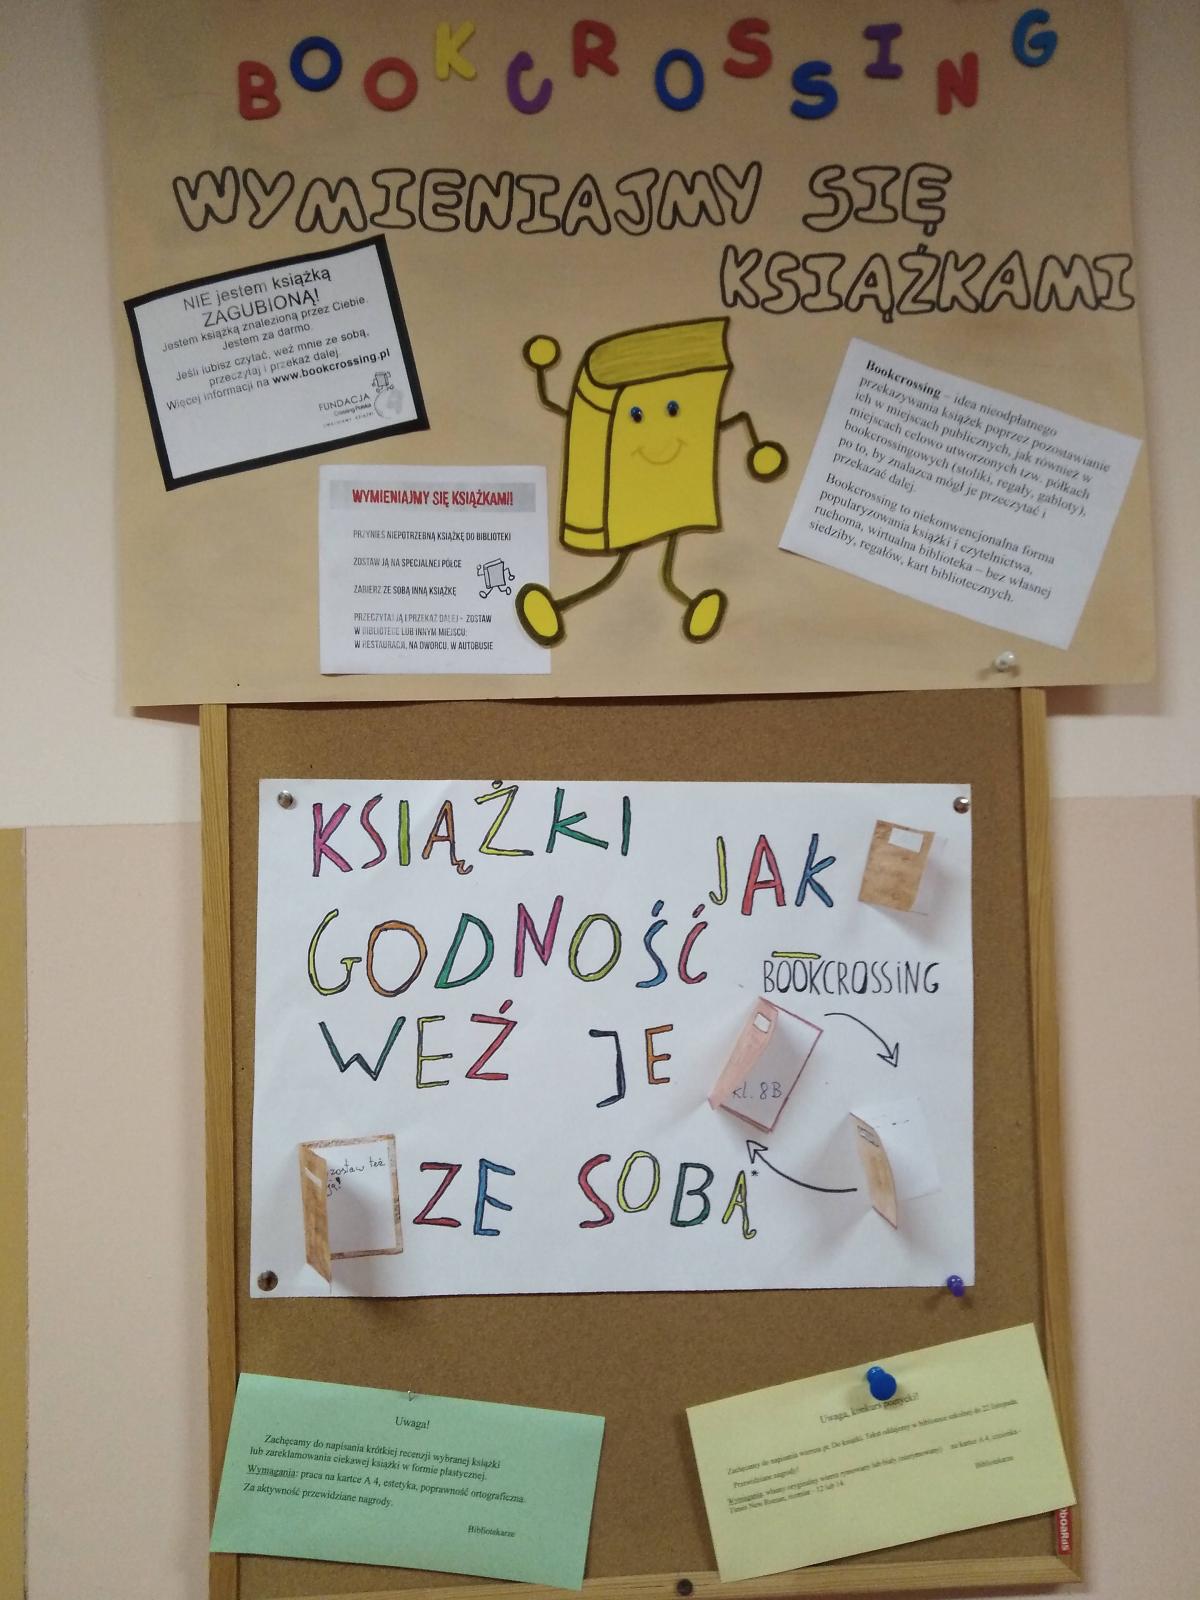 BOOKCROSSING
WYMIENIAJMY SIĘ
KSIĄŻKAMI
NIE jestem książką
ZAGUBIONĄ!
Jestem książką znalezioną przez Ciebie.
Jestem za darmo.
Jeśli lubisz czytać, weź mnie ze sobą,
przeczytaj i przekaż dalej.
Więcej informacji na www.bookcrossing.pl
FUNDACJA
Crossing Polska
WYMIENIAJMY SIĘ KSIĄŻKAMI!
PRZYNIEŚ NIEPOTRZEBNĄ KSIĄŻKĘ DO BIBLIOTEKI
ZOSTAW JĄ NA SPECJALNEJ PÓŁCE
ZABIERZ ZE SOBĄ INNĄ KSIĄŻKĘ
PRZECZYTAJ JĄ I PRZEKAŻ DALEJ - ZOSTAW
W BIBLIOTECE LUB INNYM MIEJSCU:
W RESTAURACJI, NA DWORCU, W AUTOBUSIE
Bookcrossing – idea nieodpłatnego
przekazywania książek poprzez pozostawianie
ich w miejscach publicznych, jak również w
miejscach celowo utworzonych tzw. półkach
bookcrossingowych (stoliki, regały, gabloty),
po to, by znalazca mógł je przeczytać i
przekazać dalej.
Bookcrossing to niekonwencjonalna forma
popularyzowania książki i czytelnictwa,
ruchoma, wirtualna biblioteka – bez własnej
siedziby, regałów, kart bibliotecznych.
KSIĄŻKI
JAK
GODNOŚĆ
BOOKCROSSING
WEŹ JE
kl. 8B
zostaw też
ją!
ZE SOBĄ*
Uwaga!
Zachęcamy do napisania krótkiej recenzji wybranej książki
lub zareklamowania ciekawej książki w formie plastycznej.
Wymagania: praca na kartce A 4, estetyka, poprawność ortograficzna.
Za aktywność przewidziane nagrody.
Bibliotekarze
Uwaga, konkurs poetycki!
Zachęcamy do napisania wiersza pt. Do książki. Tekst oddajemy w bibliotece szkolnej do 22 listopada.
Przewidziane nagrody!
Wymagania: własny oryginalny wiersz rymowany lub biały (nierymowany) na kartce A 4, czcionka -
Times New Roman, rozmiar - 12 lub 14.
Bibliotekarze